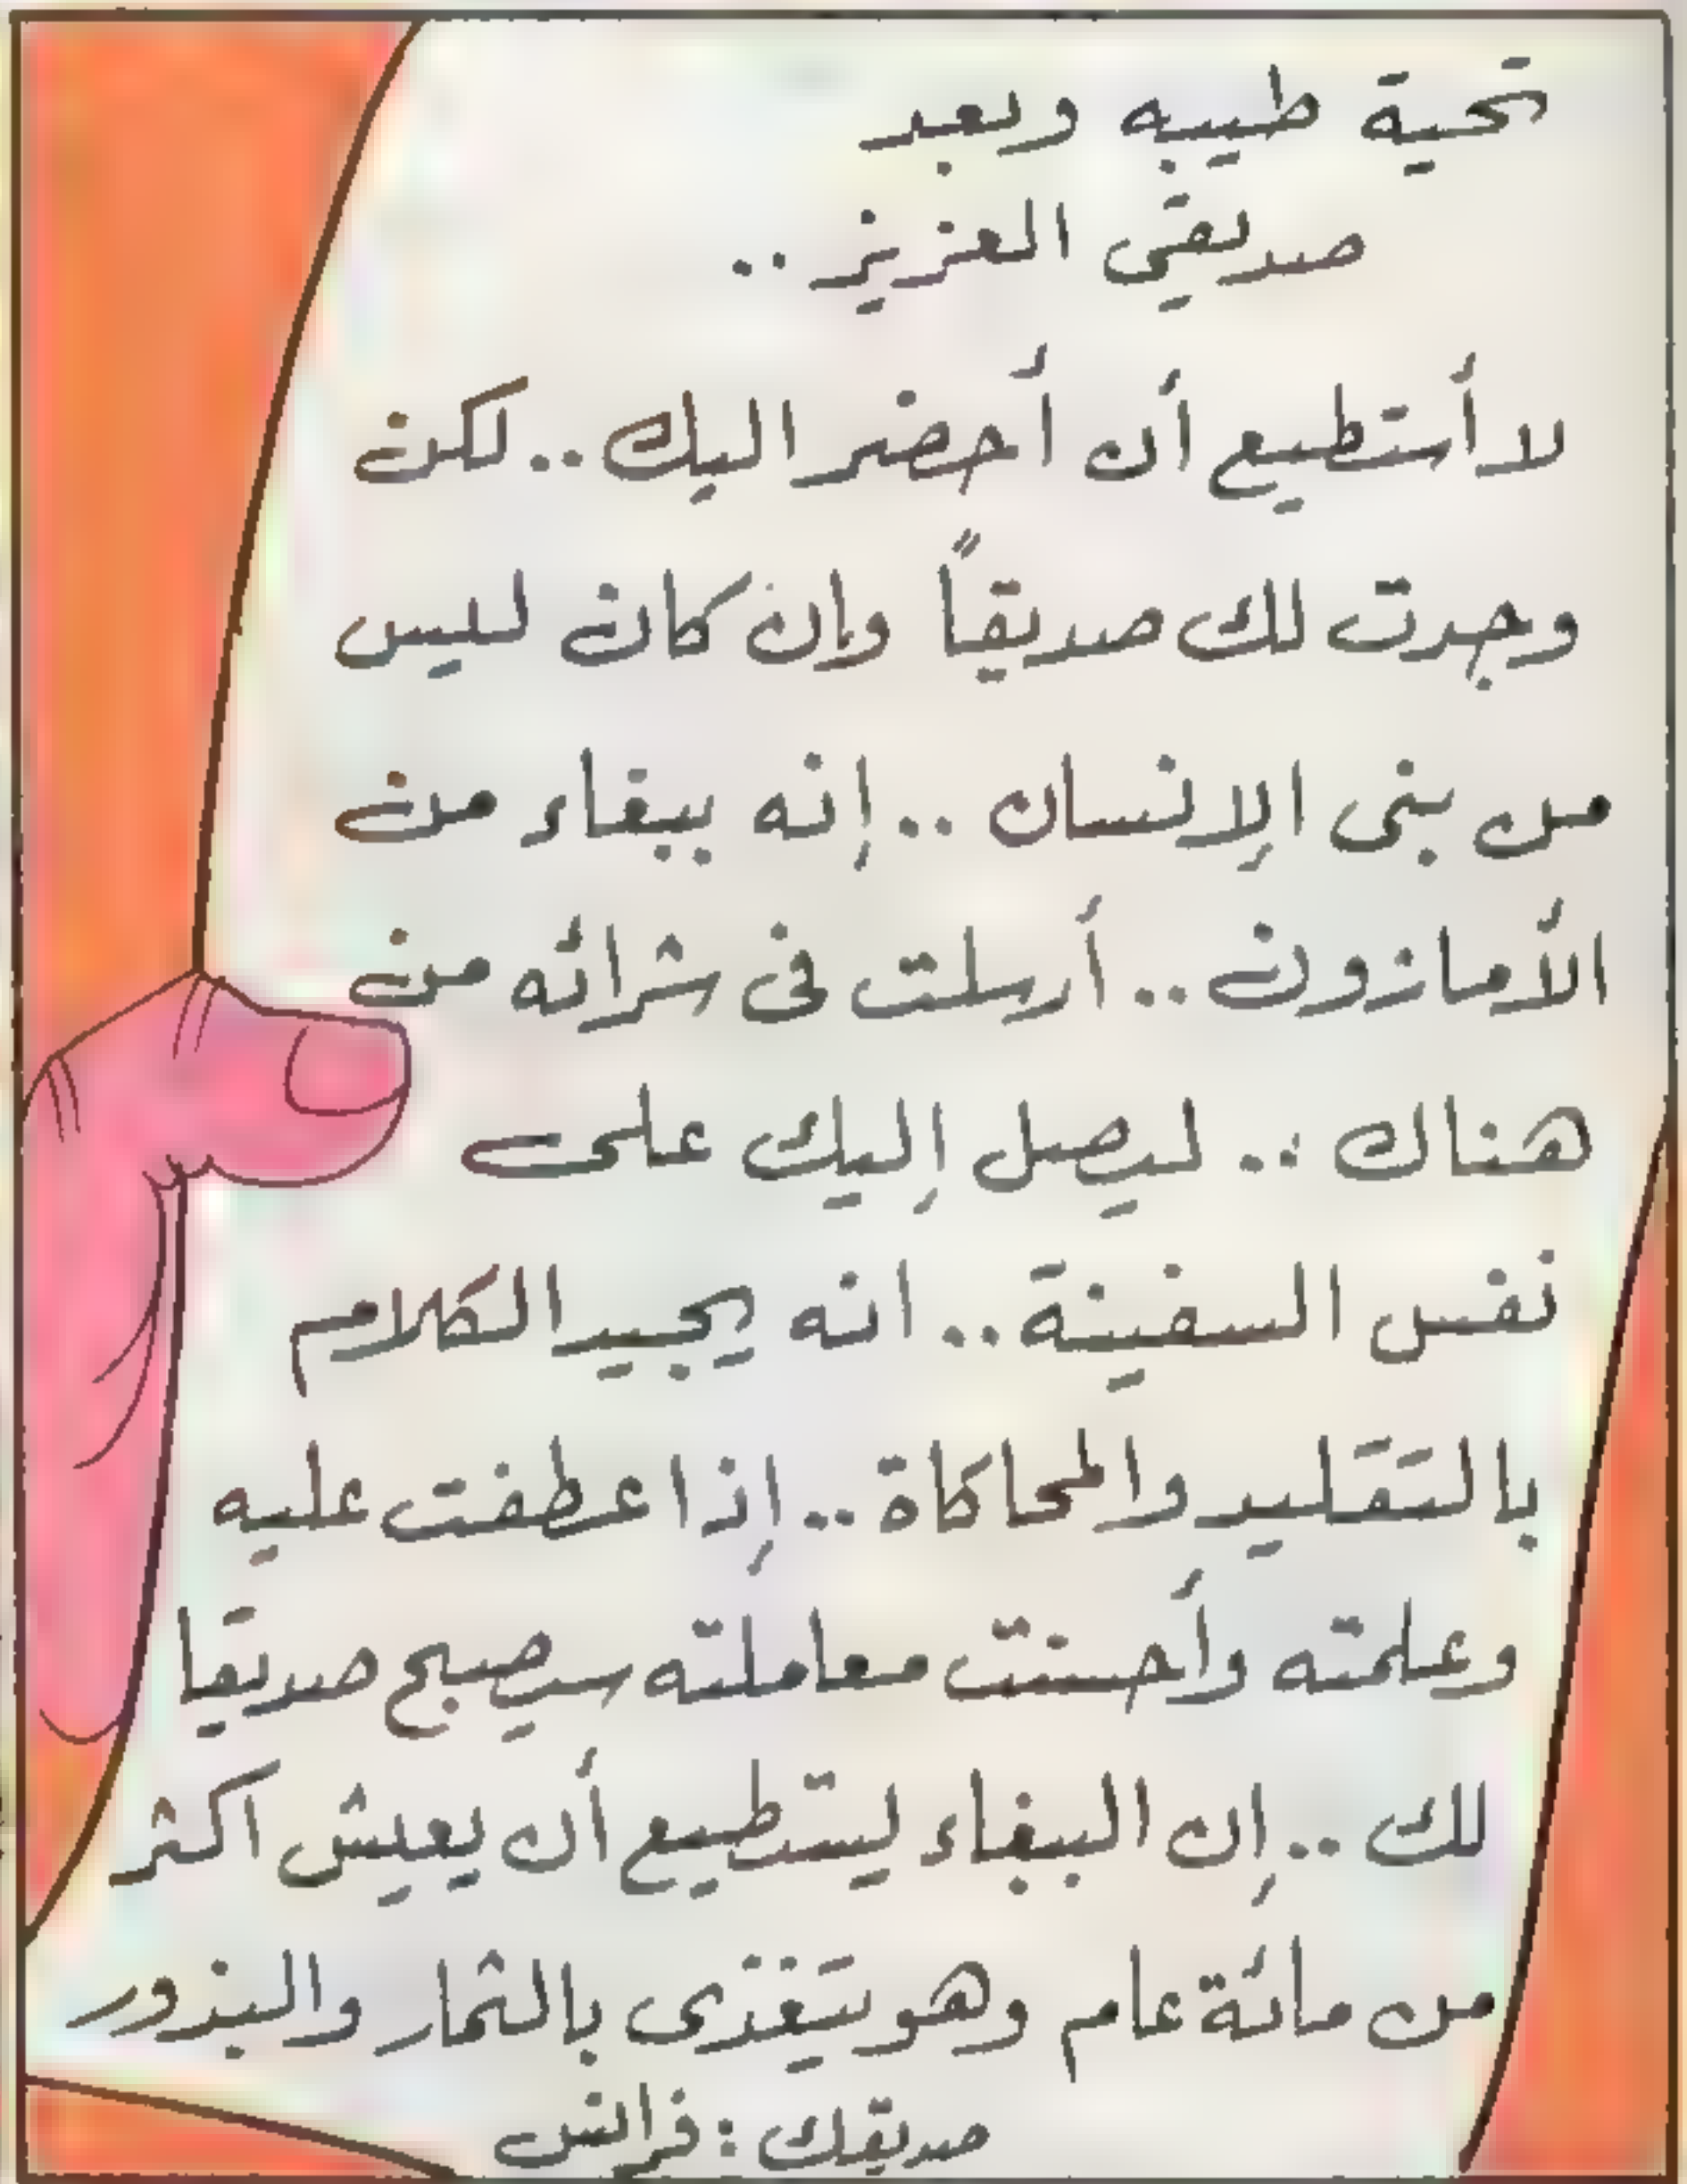 تحية طيبه وبعد
صديقي العزيز ..
لا أستطيع أن أحضر اليك .. لكن
وجدت لك صديقاً وإن كان ليس
من بنى الإنسان .. إنه ببغاء من
الأمازون .. أرسلت فى شرائه من
هناك .. ليصل إليك على
نفس السفينة .. انه يجيد الكلام
بالتقليد والمحاكاة .. إذا عطفت عليه
وعلمته وأحسنت معاملته سيصبح صديقا
لك .. إن الببغاء ليستطيع أن يعيش اكثر
من مائة عام وهو يتغذى بالثمار والبذور
صديقك : فرانس